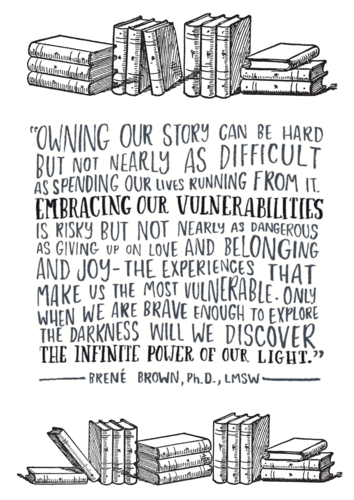 "OWNING OUR STORY CAN BE HARD
BUT NOT NEARLY AS DIFFICULT
AS SPENDING OUR LIVES RUNNING FROM IT.
EMBRACING OUR VULNERABILITIES
IS RISKY BUT NOT NEARLY AS DANGEROUS
AS GIVING UP ON LOVE AND BELONGING
AND JOY-THE EXPERIENCES THAT
MAKE US THE MOST VULNERABLE. ONLY
WHEN WE ARE BRAVE ENOUGH TO EXPLORE
THE DARKNESS WILL WE DISCOVER
THE INFINITE POWER OF OUR LIGHT."
BRENÉ BROWN, Ph.D., LMSW